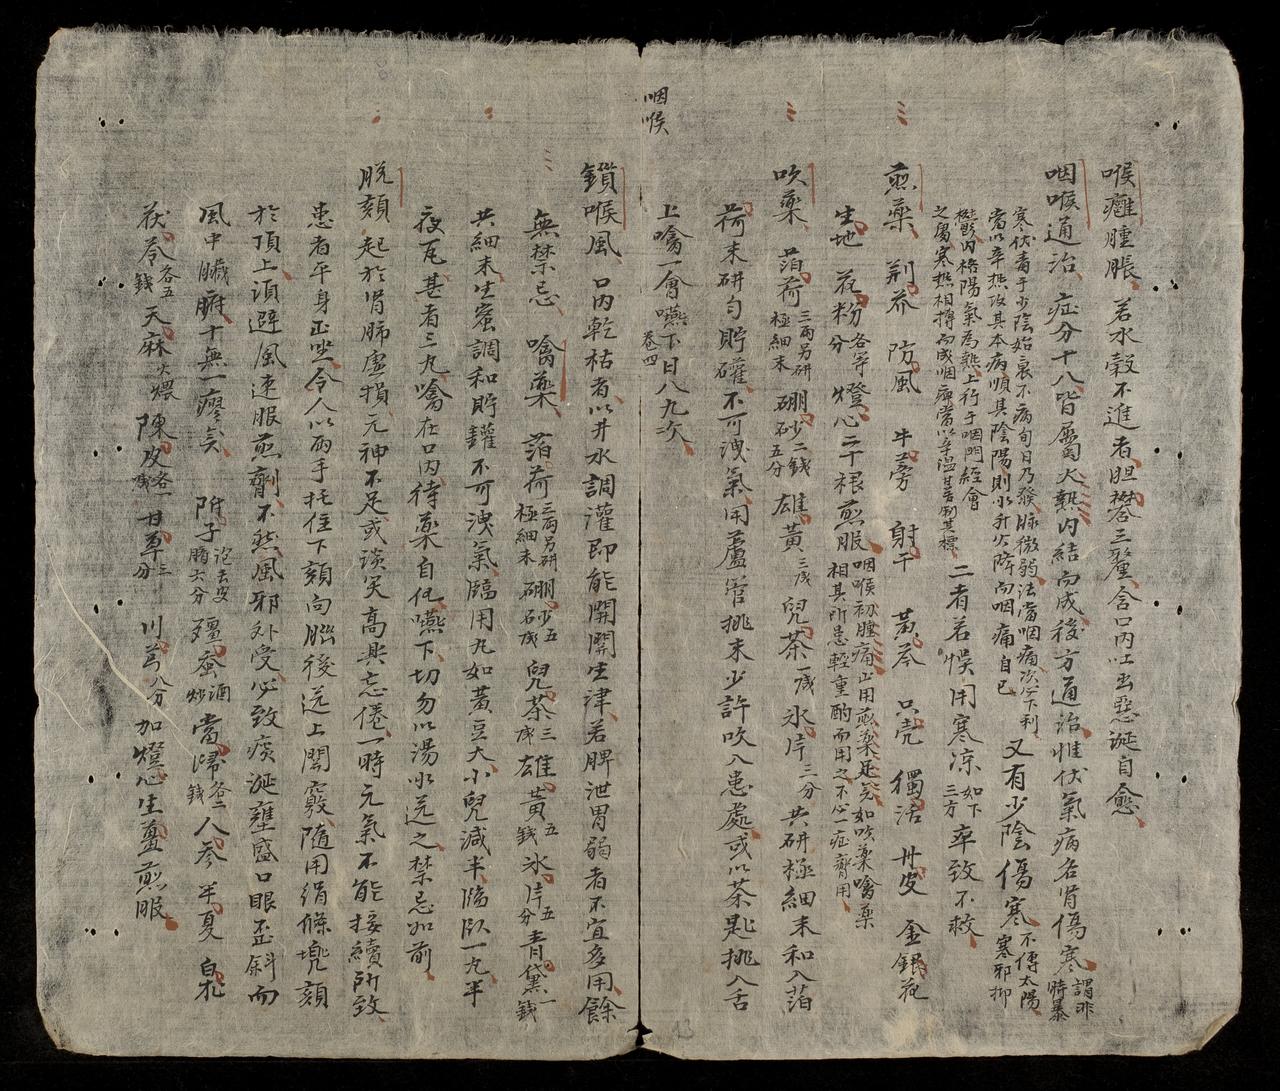 喉癰腫脹 若水穀不進者胆礬三釐含口内吐出惡涎自愈
咽喉通治 症分十八皆屬火熱内結而成後方通治惟伏氣病名肾傷寒 謂非時暴
寒伏毒于少陰始衰不病旬日乃發脉微弱法當咽痛次必下利
當以辛热攻其本病順其陰陽則水升火降而咽痛自已 又有少陰傷寒 不傳太陽寒邪抑
之為寒热相搏而成咽痹當以辛温甘苦制其標 二者若悞用寒凉 如下三方 卒致不救
煎藥 荆芥 防風 牛蒡 射干 黄芩 只壳 獨活 丹皮 金銀花
生地 花粉 各等分 燈心二十根煎服 咽喉初腫痛止用煎藥足矣如吹藥噙藥相其所患輕重酌而用之不必一症齊用
吹藥 萡荷 三両另研極細末 硼砂 二錢五分 雄黄 三戋 兒茶 一戋 氷片 三分 共研極細末和入萡
荷末研匀貯礶不可洩氣用蘆管挑末少許吹入患處或以茶匙挑入舌
上噙一會嚥下日八九次
咽喉
卷四
鎖喉風 口内乾枯者以井水調灌即能開關生津若脾泄胃弱者不宜多用餘
無禁忌 噙藥 萡荷 三両另研極細末 硼砂 五戋 兒茶 三戋 雄黄 五錢 氷片 五分 青黛 一錢
共細末生蜜調和貯鑵不可洩氣臨用丸如黄豆大小兒減半臨卧一丸半
夜一丸甚者三丸噙在口内待藥自化嚥下切勿以湯水送之禁忌如前
脱頦 起於肾肺虚損元神不足或談笑高興忘倦一時元氣不能接續所致
患者平身正坐令人以両手托住下頦向腦後送上關竅随用绢條兠頦
於頂上須避風速服煎劑不然風邪外受必致痰涎壅盛口眼歪斜而
風中臟腑十無一瘳矣 附子 泡去皮臍六分 殭蚕 酒炒 當歸 各二錢 人参 半夏 白朮
茯苓 各五錢 天麻 火煨 陳皮 各一戋 甘草 三分 川芎 八分 加燈心生薑煎服
13